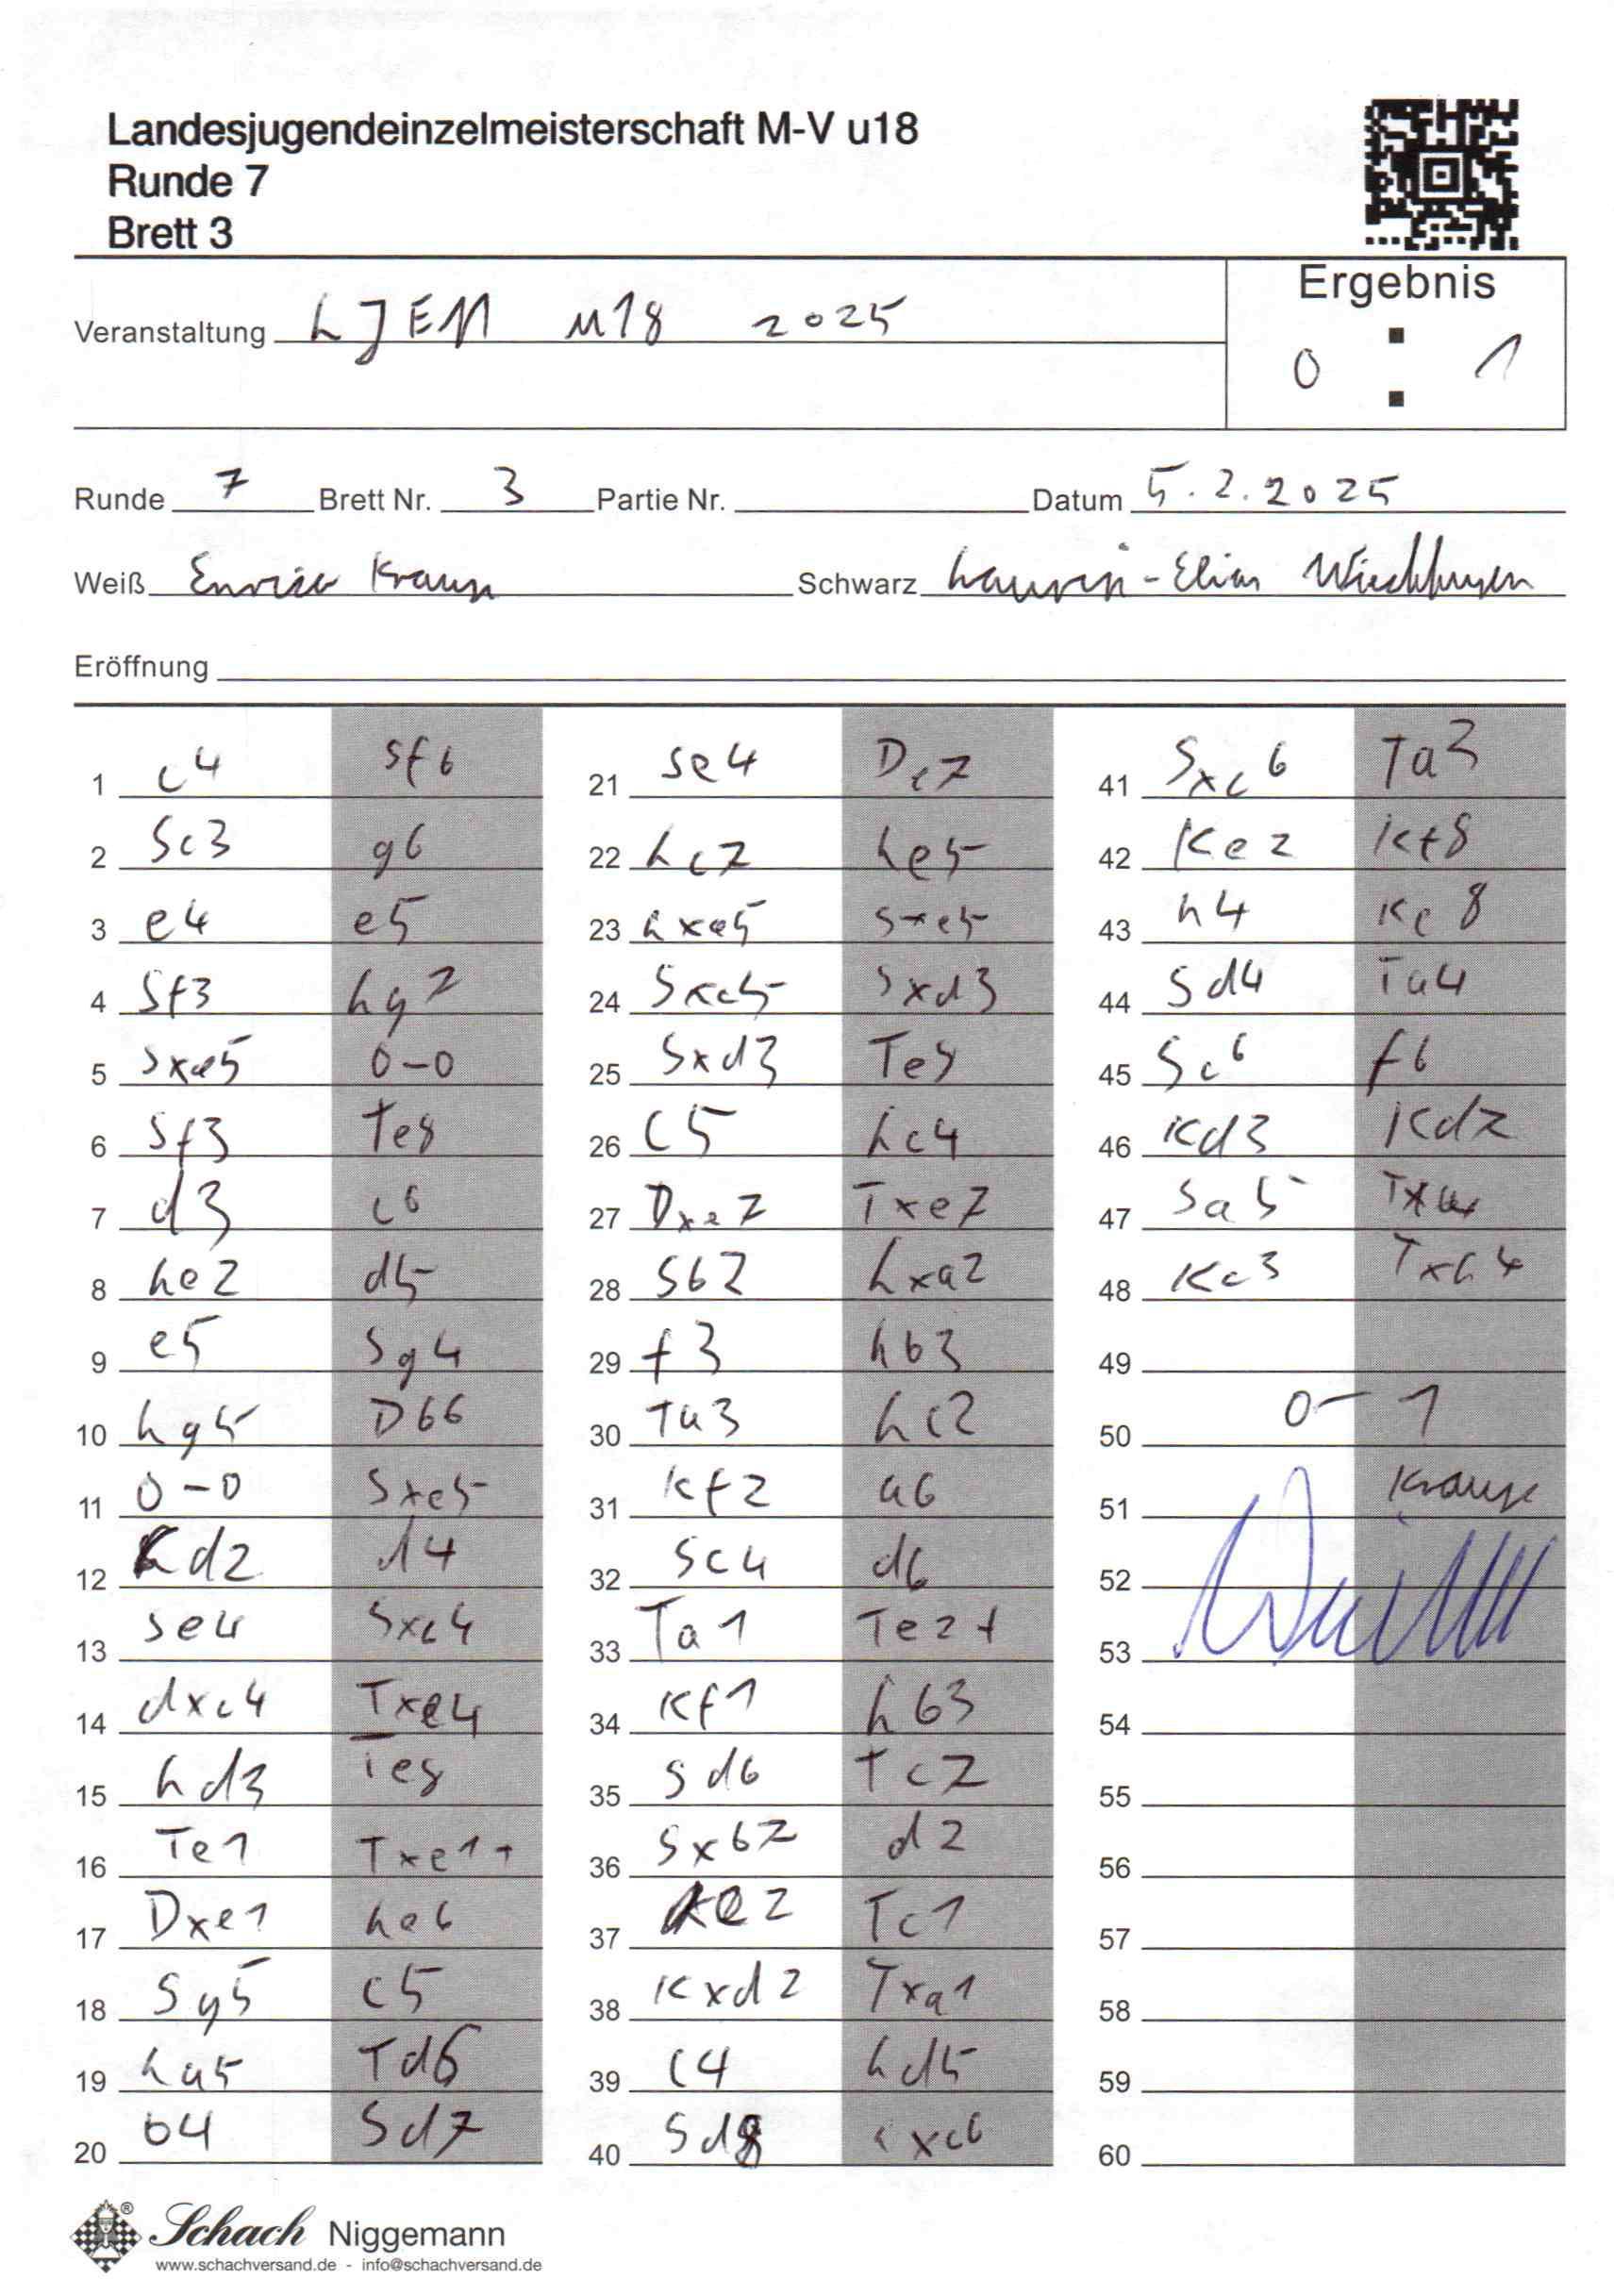 Landesjugendeinzelmeisterschaft M-V u18
Runde 7
Brett 3
Ergebnis
Veranstaltung LJEM u18 2025
0 : 1
Runde 7 Brett Nr. 3 Partie Nr. Datum 5.2.2025
Weiß Enrico Krause Schwarz Laurin-Elias
Eröffnung
1 c4 Sf6 21 Se4 De7 41 Sxc6 Ta3
2 Sc3 g6 22 Lc7 Le5 42 Ke2 Kf8
3 e4 e5 23 Lxe5 Sxe5 43 h4 Ke8
4 Sf3 Lg7 24 Sxc5 Sxd3 44 Sd4 Ta4
5 Sxe5 0-0 25 Sxd3 Te8 45 Sc6 f6
6 Sf3 Te8 26 c5 Lc4 46 Kd3 Kd7
7 d3 c6 27 Dxe7 Txe7 47 Sa5
8 Le2 d5 28 Sb2 Lxa2 48 Kc3 Txh4
9 e5 Sg4 29 f3 Lb3 49
10 Lg5 Db6 30 Ta3 Lc2 50 0-1
11 0-0 Sxe5 31 Kf2 a6 51 Krause
12 Ld2 d4 32 Sc4 d6 52
13 Se4 Sxc4 33 Ta1 Te2+ 53
14 dxc4 Txe4 34 Kf1 Lb3 54
15 Ld3 Te8 35 Sd6 Tc2 55
16 Te1 Txe1+ 36 Sxb7 d2 56
17 Dxe1 Le6 37 Ke2 Tc1 57
18 Sg5 c5 38 Kxd2 Txa1 58
19 La5 Td6 39 c4 Ld5 59
20 b4 Sd7 40 Sd8 xc6 60
Schach Niggemann
www.schachversand.de - info@schachversand.de